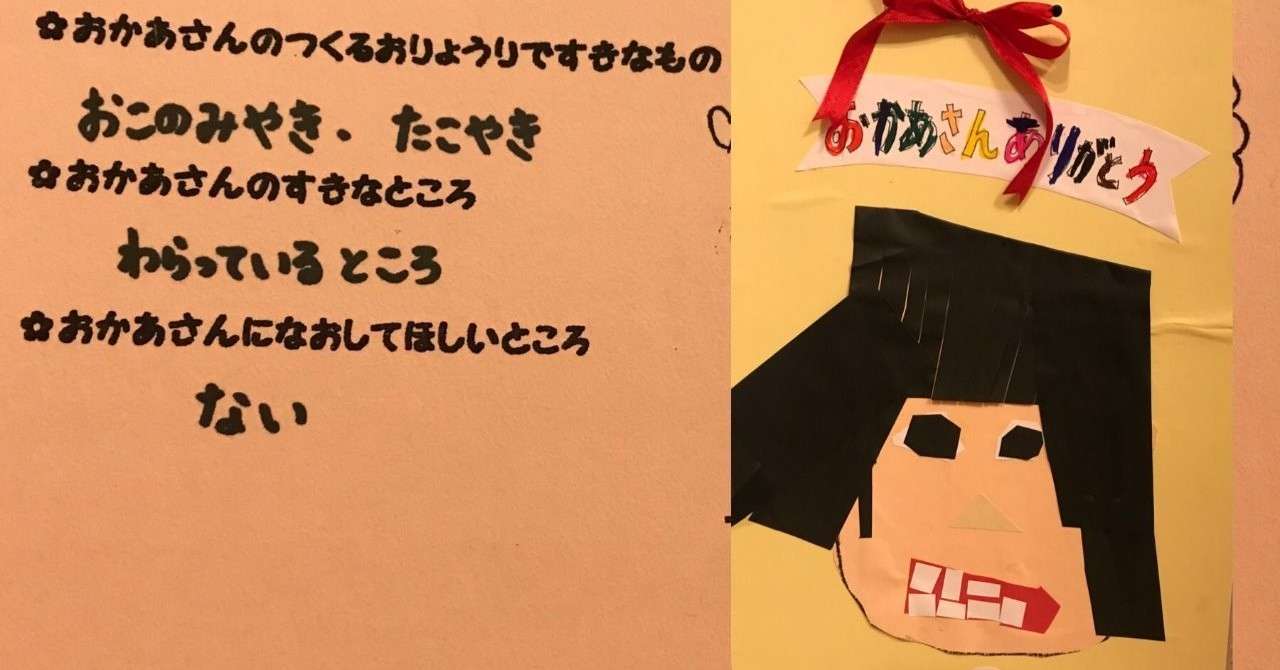 ✿おかあさんのつくるおりょうりですきなもの
おこのみやき、たこやき
✿おかあさんのすきなところ
わらっているところ
✿おかあさんになおしてほしいところ
ない
おかあさんありがとう